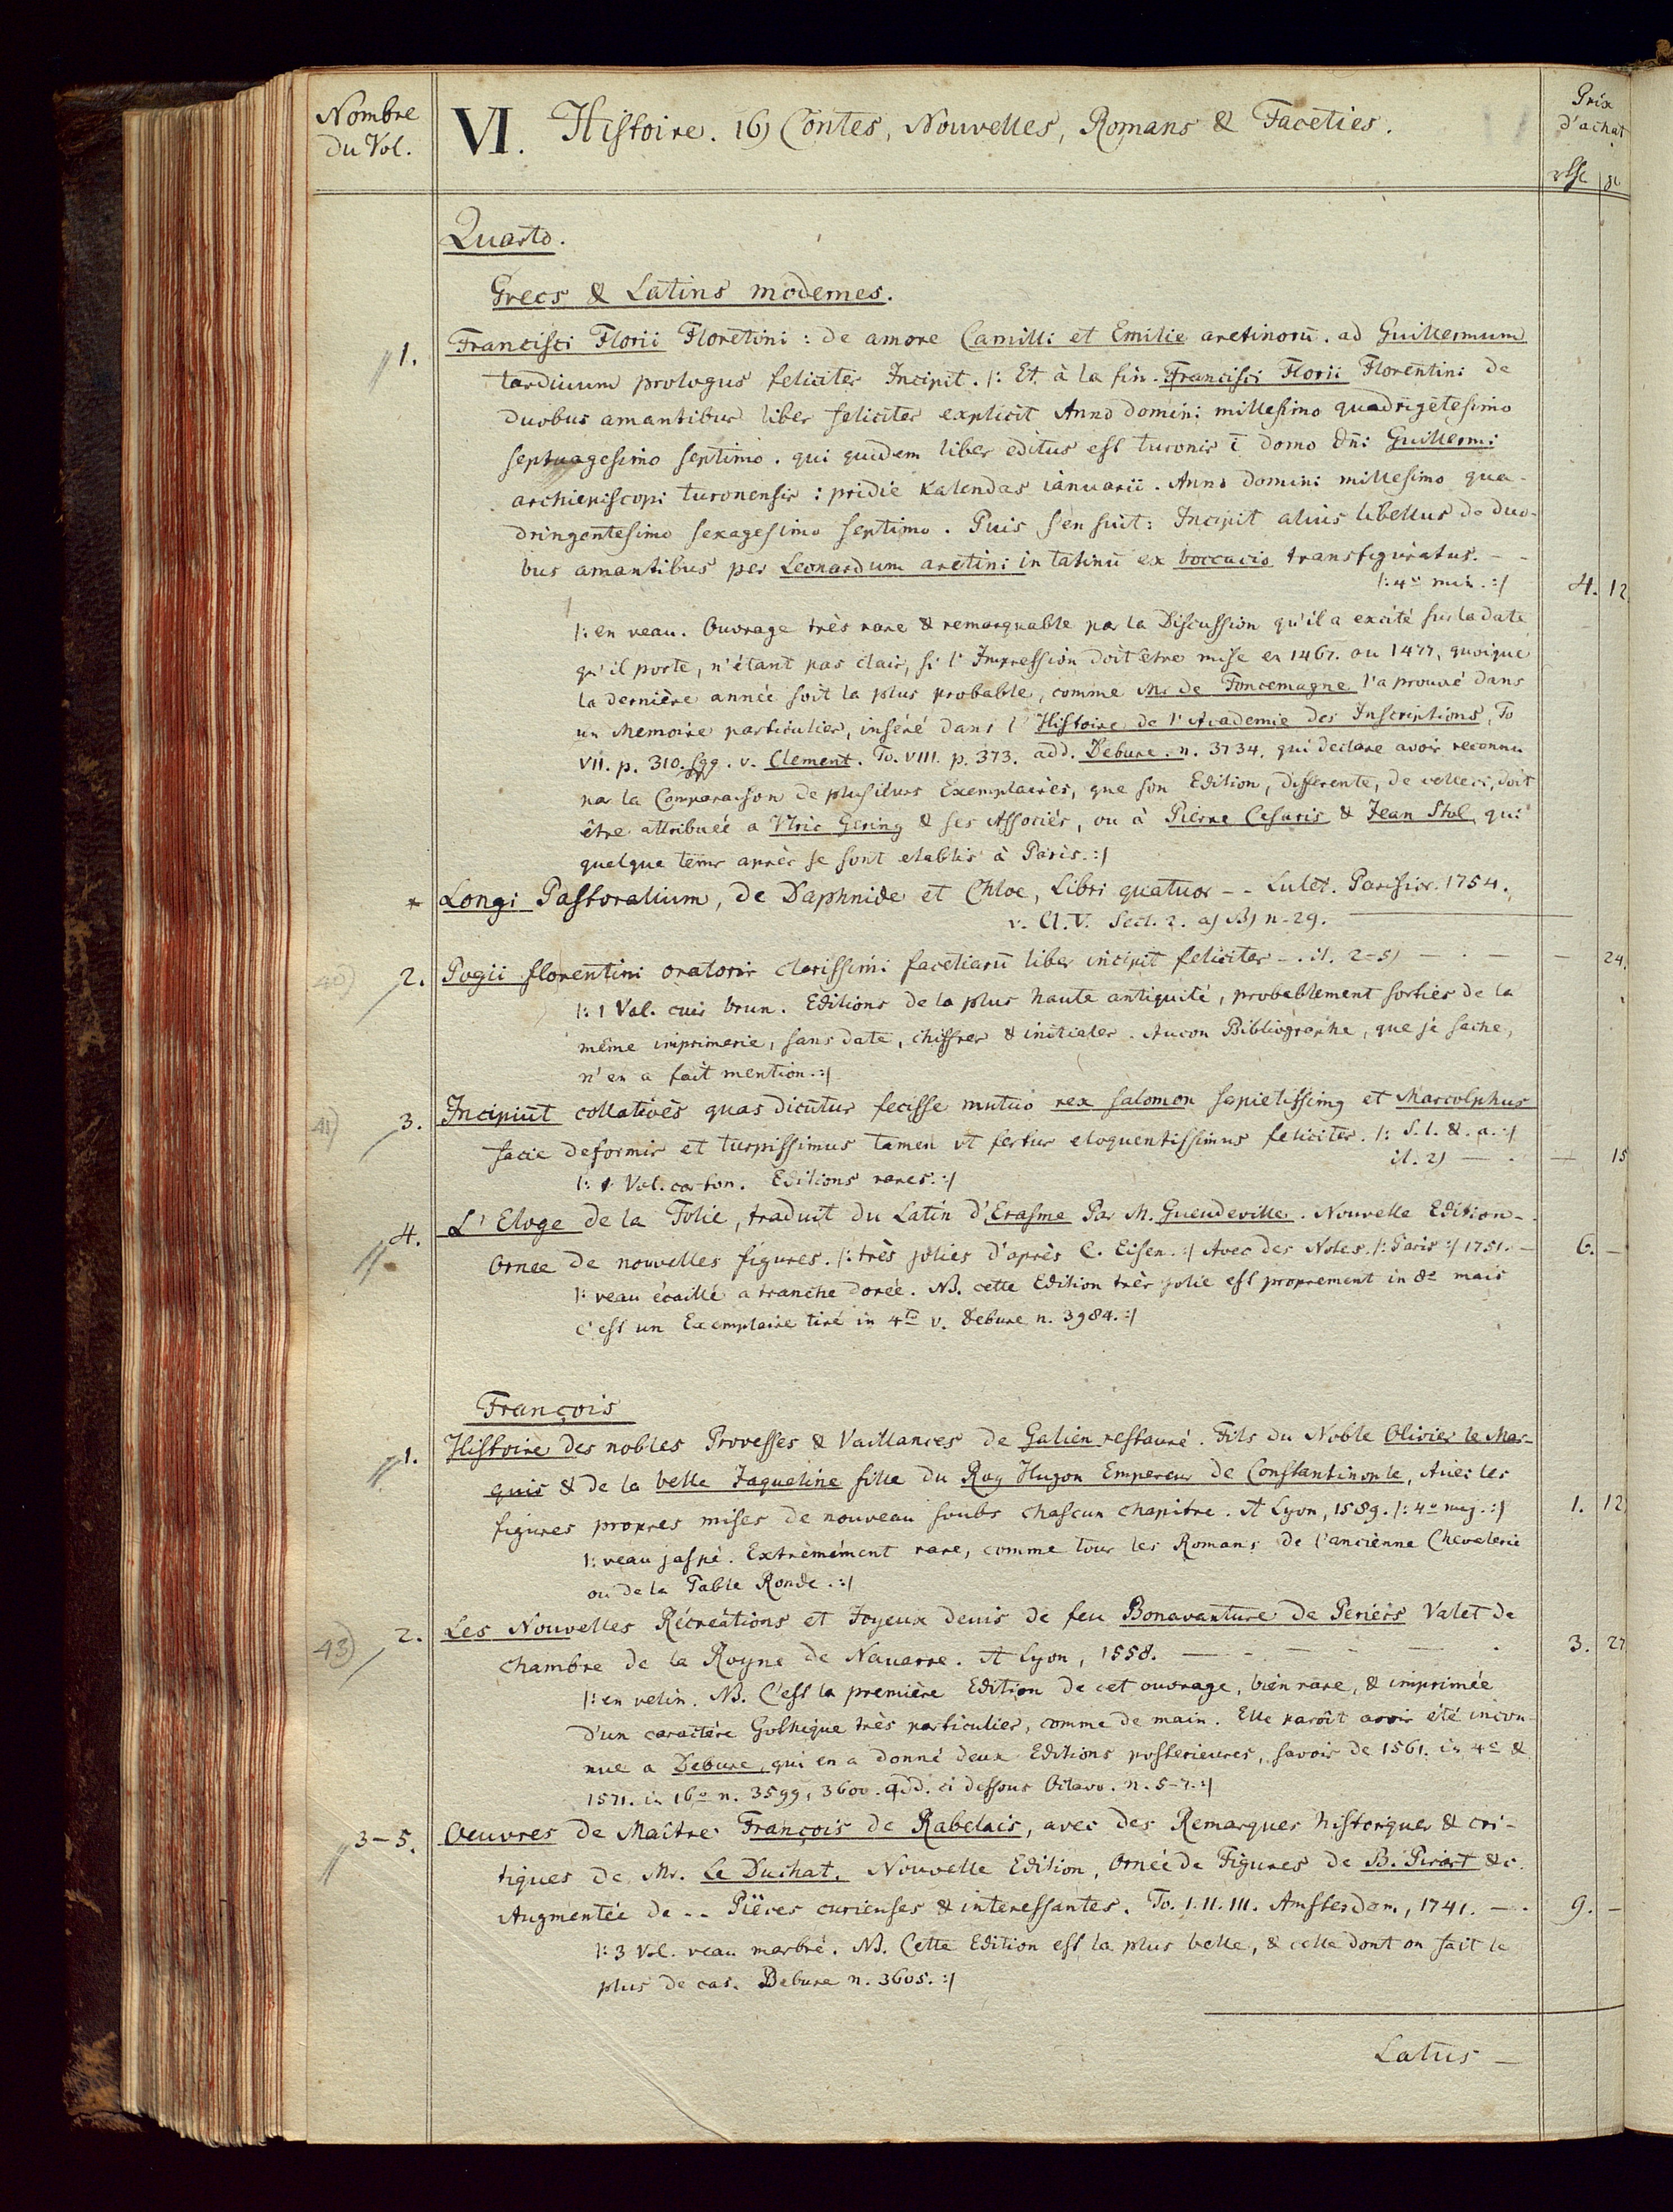 Nombre
du Vol.
VI. Histoire. 16) Contes, Nouvelles, Romans & Faceties.
Prix
d'achat
Quarto.
Grecs & Latins modernes.
1. Francisci Florii Floretini: de amore Camilli et Emilie aretinorū. ad Guillermum
tardiuum prologus feliciter Incipit. /: Et à la fin. Francisci Florii Florentini de
duobus amantibus liber feliciter explicit Anno domini millesimo quadrigētesimo
septuagesimo septimo. qui quidem liber editus est turonis ī domo dn̄i Guillermi
archiepiscopi turonensis: pridie Kalendas ianuarii. Anno domini millesimo qua-
dringentesimo sexagesimo septimo. Puis s'en suit: Incipit alius libellus de duo-
bus amantibus per Leonardum aretini in latinū ex boccacio transfiguratus. - -
/: 4º min. :/ 4. 12.
/: en veau. Ouvrage très rare & remarquable par la Discussion qu'il a excité sur la date
qu'il porte, n'étant pas clair, si l'Impression doit être mise en 1467. ou 1477, quoique
la dernière année soit la plus probable, comme Mr de Foncemagne l'a prouvé dans
un Memoire particulier, inséré dans l'Histoire de l'Academie des Inscriptions, To
VII. p. 310. sqq. v. Clement. To. VIII. p. 373. add. Debure. n. 3734. qui declare avoir reconnu
par la Comparaison de plusieurs Exemplaires, que son Edition, differente, de celleci, doit
être attribuée a Vlric Gering & ses Associés, ou à Pierre Cesaris & Jean Stol, qui
quelque tems après se sont etablis à Paris. :/
* Longi Pastoralium, de Daphnide et Chloe, Libri quatuor - - Lutet. Parisior. 1754.
v. A. V. Sect. 2. a) B) n. 29.
40) 2. Pogii florentini oratoris clarissimi facetiarū liber incipit feliciter - . il. 2-5) — . — — 24.
/: 1 Vol. cuir brun. Editions de la plus haute antiquité, probablement sorties de la
même imprimerie, sans date, chiffres & initiales. Aucun Bibliographe, que je sache,
n'en a fait mention. :/
41) 3. Incipiūt collatiōēs quas dicūtur fecisse mutuo rex salomon sapiētissimꝰ et Marcolphus
facie deformis et turpissimus tamen vt fertur eloquentissimus feliciter. /: S. l. &. a. :/
il. 2) — - — 15
/: 1 Vol. carton. Editions rares. :/
4. L'Eloge de la Folie, traduit du Latin d'Erasme Par M. Gueudeville. Nouvelle Edition -
Ornée de nouvelles figures. /: très jolies d'après C. Eisen. :/ Avec des Notes. /: Paris :/ 1751. - 6. —
/: veau écaillé a tranche dorée. NB. cette Edition très jolie est proprement in 8º mais
c'est un Exemplaire tiré in 4to v. Debure n. 3984. :/
François
1. Histoire des nobles Provesses & Vaillances de Galien restauré. Fils du Noble Olivier le Mar-
quis & de la belle Jaqueline fille du Roy Hugon Empereur de Constantinople, Auec les
figures propres mises de nouveau soubs chascun chapitre. A Lyon, 1589. /: 4º maj. :/ 1. 12
/: veau jaspé. Extrèmement rare, comme tous les Romans de l'ancienne Chevalerie
ou de la Table Ronde. :/
43) 2. Les Nouvelles Récréations et Joyeux deuis de feu Bonavanture de Periers Valet de
chambre de la Royne de Nauarre. A Lyon, 1558. — - — - — - 3. 27
/: en velin. NB. C'est la première Edition de cet ouvrage, bien rare, & imprimée
d'un caractère Gothique très particulier, comme de main. Elle paroît avoir été incon-
nue a Debure, qui en a donné deux Editions posterieures, savoir de 1561. in 4º &
1571. in 16º n. 3599, 3600. add. ci dessous Octavo. n. 5-7. :/
3-5. Oeuvres de Maître François de Rabelais, avec des Remarques historiques & cri-
tiques de Mr. Le Duchat. Nouvelle Edition, Ornée de Figures de B. Picart &c.
Augmentée de - - Pièces curieuses & interessantes. To. I. II. III. Amsterdam, 1741. - . 9. —
/: 3 Vol. veau marbré. NB. Cette Edition est la plus belle, & celle dont on fait le
plus de cas. Debure n. 3605. :/
Latus —